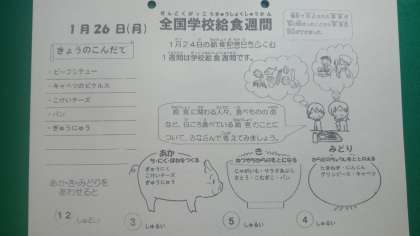 ぜんこくがっこうきゅうしょくしゅうかん
1月26日(月)
全国学校給食週間
きょうのこんだて
・ビーフシチュー
・キャベツのピクルス
・こけいチーズ
・パン
・ぎゅうにゅう
1月24日の給食記念日からはじむ
1週間は学校給食週間です。
給食に関わる人々、食べものの命
など、日ごろ食べている給食のことに
ついて、みなさんで考えてみましょう。
あか・き・みどりを
あわせると
12 しゅるい
あか
ち・にく・ほねをつくる
ぎゅうにく
こけいチーズ
ぎゅうにゅう
③ しゅるい
き
ねつやちからのもとになる
じゃがいも・サラダあぶら
さとう・こむぎこ・パン
⑤ しゅるい
みどり
からだのちょうしをととのえる
たまねぎ・にんじん
グリンピース・キャベツ
④ しゅるい